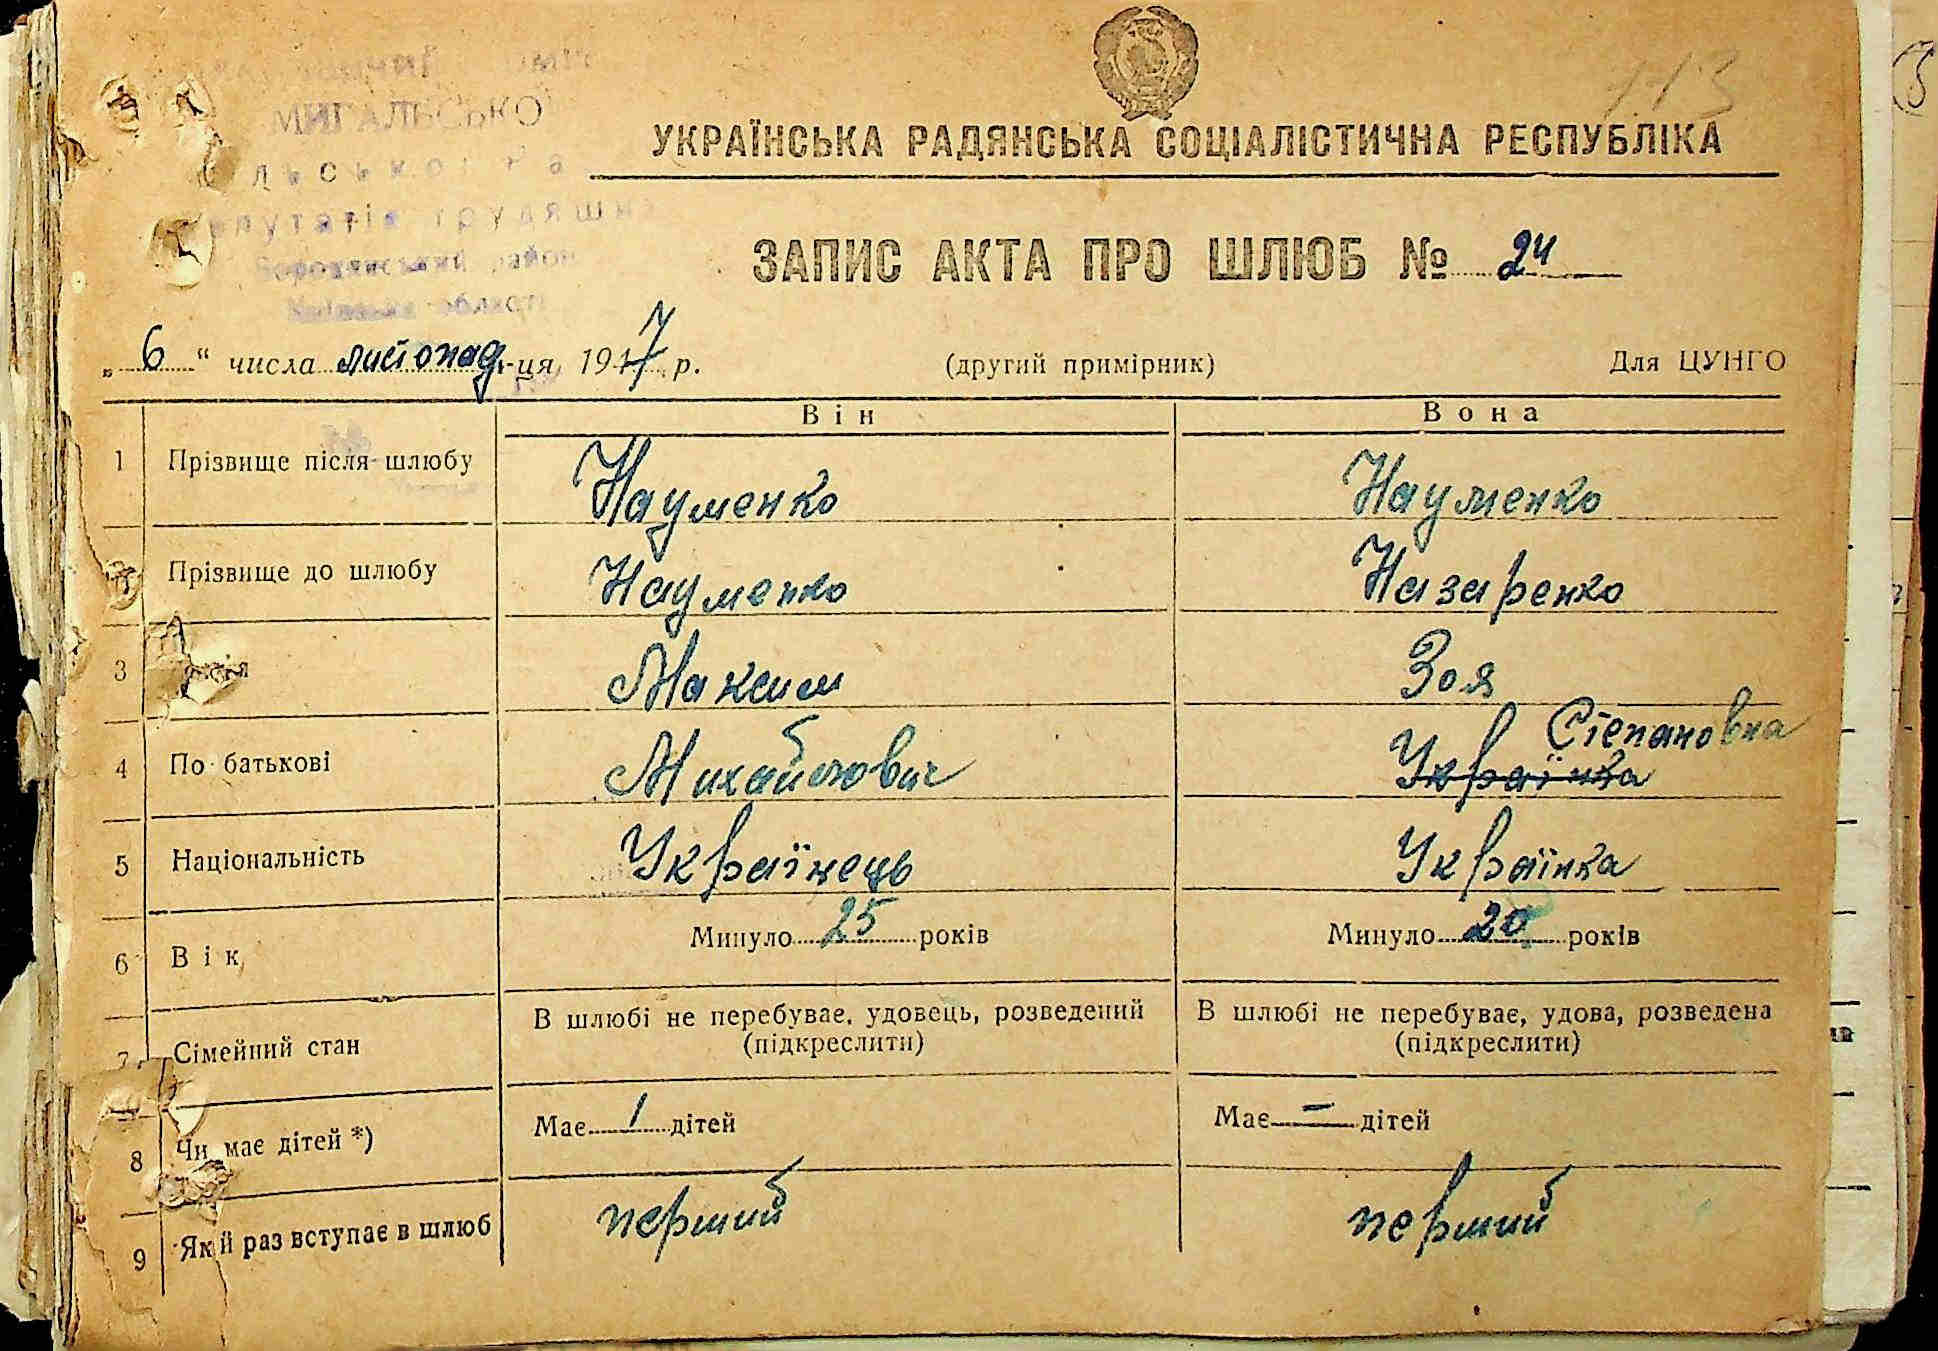 113
МИГАЛЬСЬКО
УКРАЇНСЬКА РАДЯНСЬКА СОЦІАЛІСТИЧНА РЕСПУБЛІКА
ЗАПИС АКТА ПРО ШЛЮБ № 24
„ 6 “ числа листопад -ця 1947 р. (другий примірник) Для ЦУНГО
Він Вона
1 Прізвище після шлюбу Науменко Науменко
2 Прізвище до шлюбу Науменко Назаренко
3 Максим Зоя
Степановна
4 По батькові Михайлович Українка
5 Національність Українець Українка
6 Вік Минуло 25 років Минуло 20 років
7 Сімейний стан В шлюбі не перебуває, удовець, розведений В шлюбі не перебуває, удова, розведена
(підкреслити) (підкреслити)
8 Чи має дітей *) Має 1 дітей Має — дітей
9 Який раз вступає в шлюб перший перший